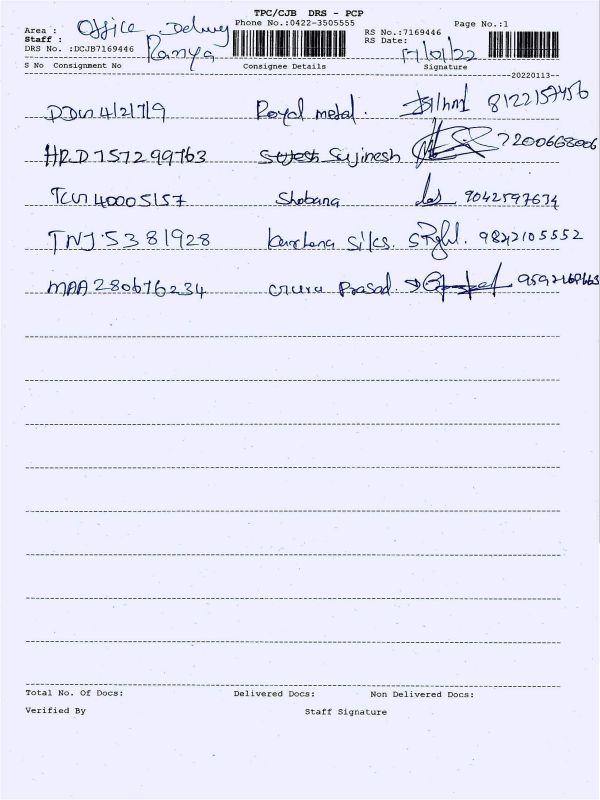 TPC/CJB DRS - PCP
Area : Office Delivery Phone No.:0422-3505555 RS No.:7169446 Page No.:1
Staff : Ramya RS Date: 17/01/22
DRS No. :DCJB7169446
S No Consignment No Consignee Details Signature
20220113
4121719 Royal metal. 8122157456
HRD757299763 Sujinesh 7200668006
40005157 Shobana 9042597634
TNJ5381928 silks. 9842105552
MAA280676234 Prasad.
Total No. Of Docs: Delivered Docs: Non Delivered Docs:
Verified By Staff Signature